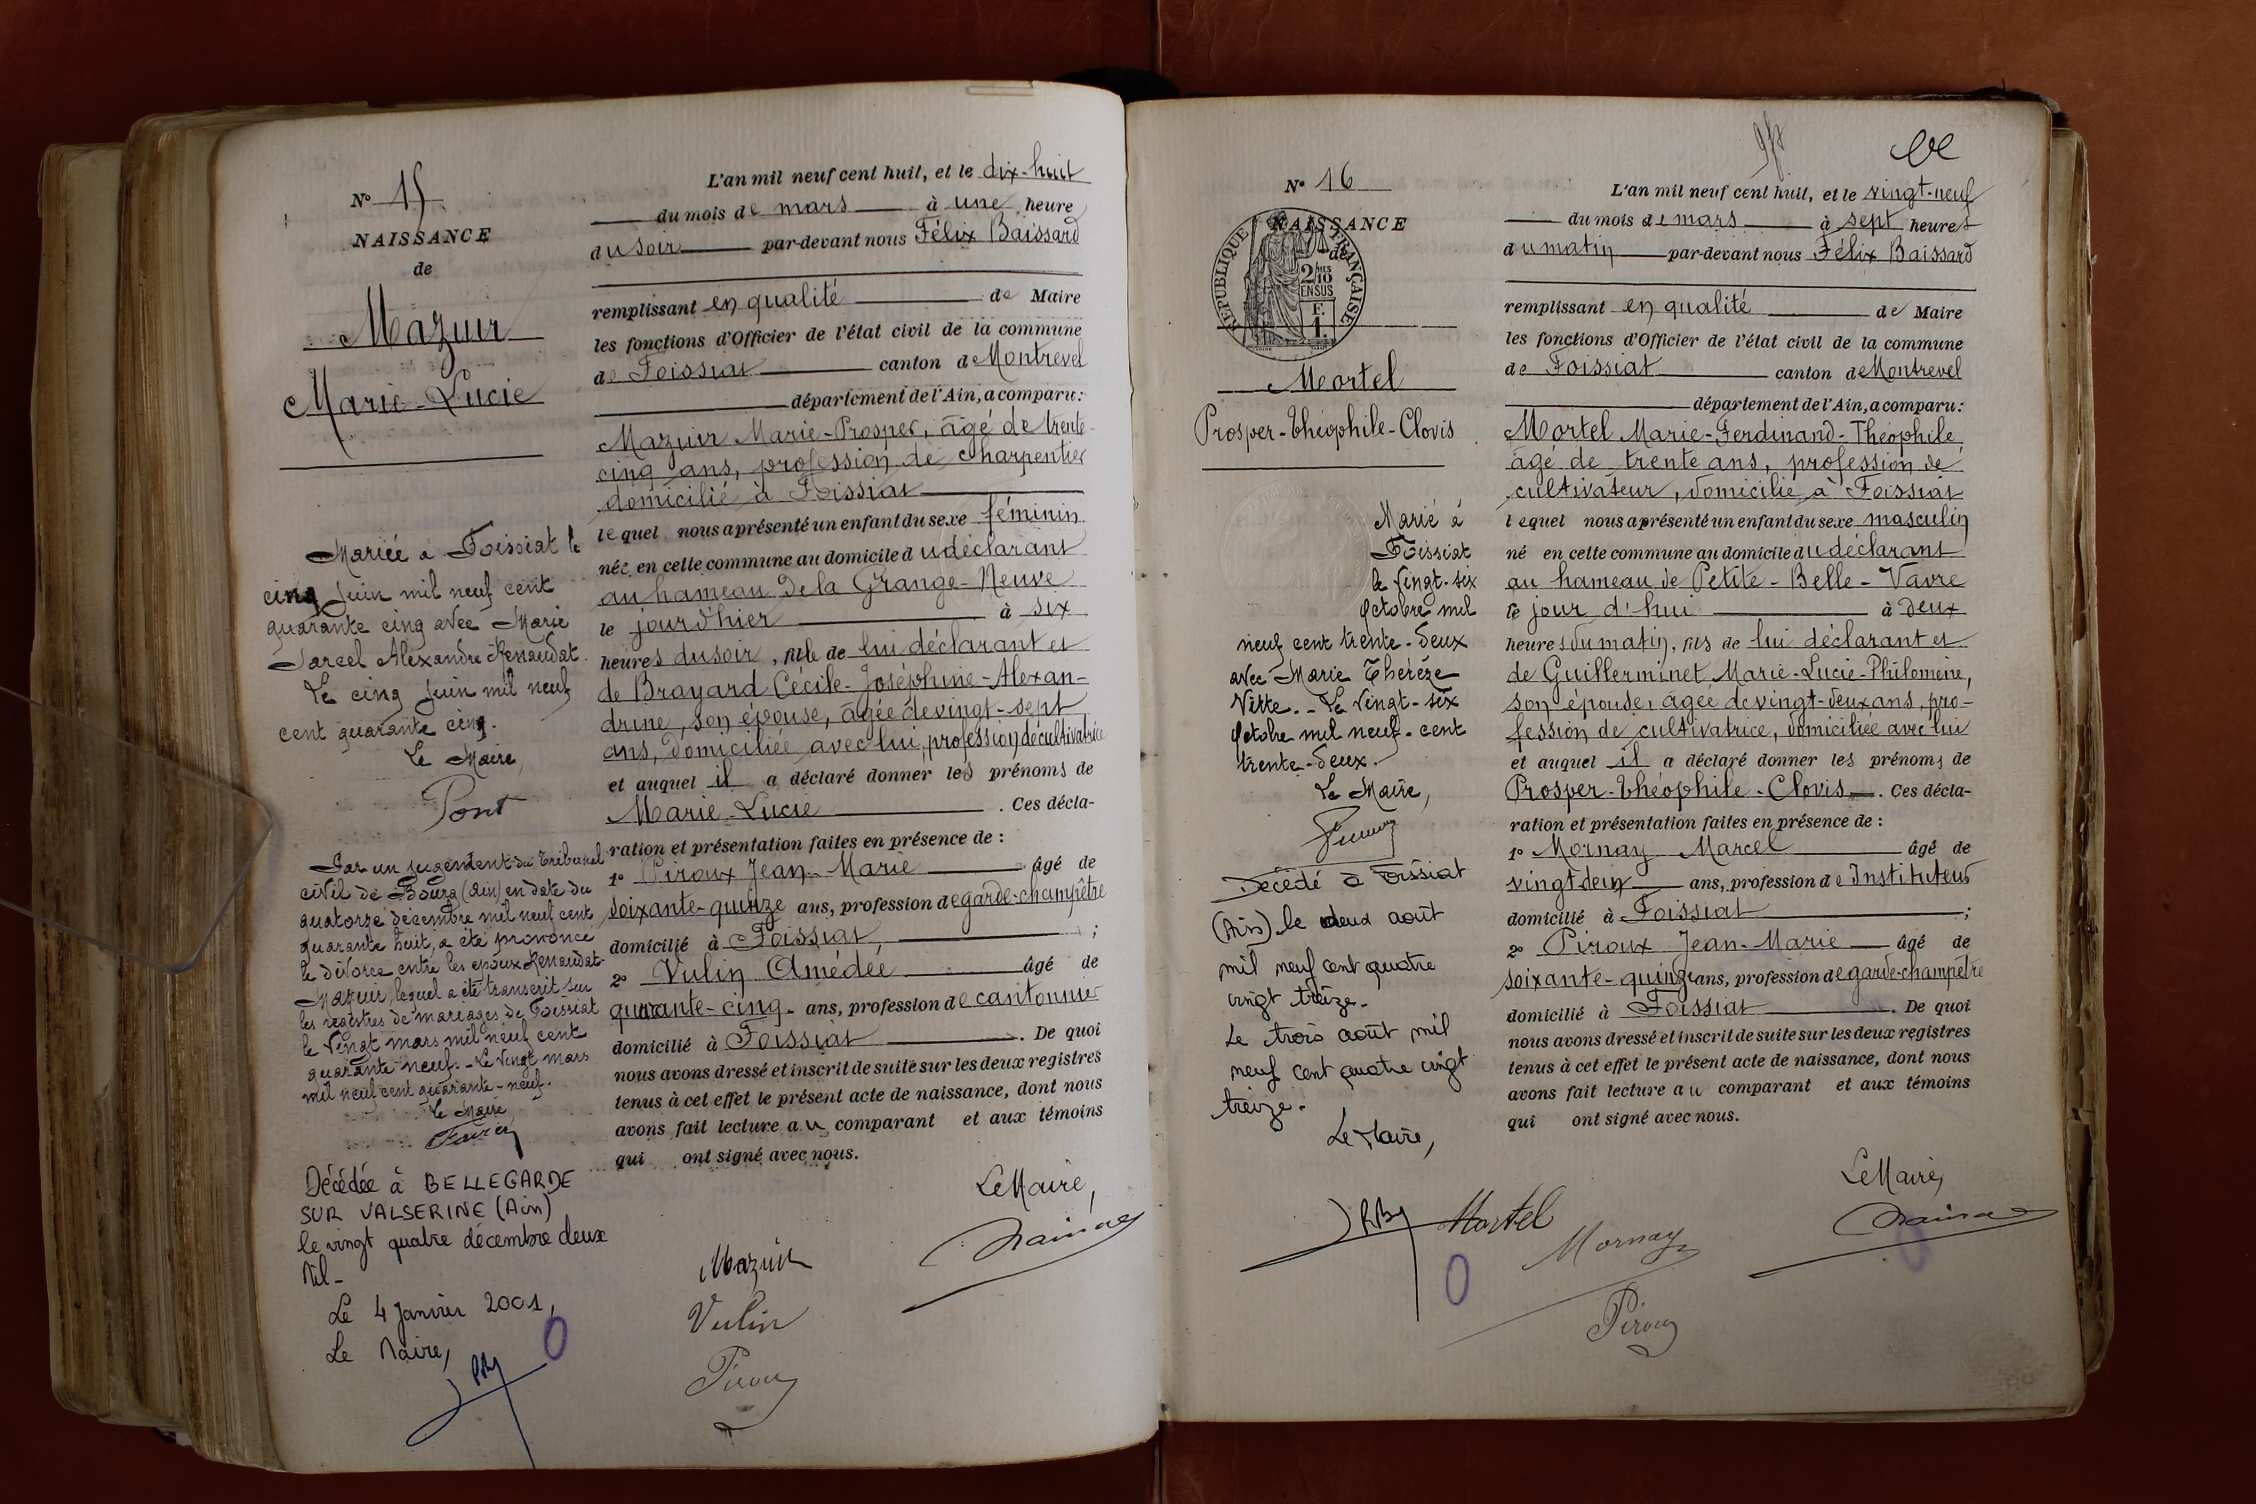 N° 15
NAISSANCE
de
Mazuir
Marie-Lucie
Mariée à Foissiat le
cinq juin mil neuf cent
quarante cinq avec Marie
Marcel Alexandre Renaudat.
Le cinq juin mil neuf
cent quarante cinq.
Le Maire,
Pont
Par un jugement du Tribunal
civil de Bourg (Ain) en date du
quatorze décembre mil neuf cent
quarante huit, a été prononcé
le divorce entre les époux Renaudat-
Mazuir, lequel a été transcrit sur
les registres de mariages de Foissiat
le vingt mars mil neuf cent
quarante neuf. - Le vingt mars
mil neuf cent quarante-neuf.
Le Maire
Décédée à BELLEGARDE
SUR VALSERINE (Ain)
le vingt quatre décembre deux
Mil -
Le 4 Janvier 2001,
Le Maire,
L'an mil neuf cent huit, et le dix-huit
du mois de mars à une heure
du soir par-devant nous Félix Baissard
remplissant en qualité de Maire
les fonctions d'Officier de l'état civil de la commune
de Foissiat canton de Montrevel
département de l'Ain, a comparu:
Mazuir Marie-Prosper, âgé de trente-
cinq ans, profession de charpentier
domicilié à Foissiat
lequel nous a présenté un enfant du sexe féminin
née en cette commune au domicile du déclarant
au hameau de la Grange-Neuve
le jour d'hier à six
heures du soir, fille de lui déclarant et
de Brayard Cécile-Joséphine-Alexan-
drine, son épouse, âgée de vingt-sept
ans, domiciliée avec lui, profession de cultivatrice
et auquel il a déclaré donner les prénoms de
Marie-Lucie . Ces décla-
ration et présentation faites en présence de :
1° Piroux Jean-Marie âgé de
soixante-quinze ans, profession de garde-champêtre
domicilié à Foissiat, ;
2° Vulin Amédée âgé de
quarante-cinq ans, profession de cantonnier
domicilié à Foissiat . De quoi
nous avons dressé et inscrit de suite sur les deux registres
tenus à cet effet le présent acte de naissance, dont nous
avons fait lecture au comparant et aux témoins
qui ont signé avec nous.
Le Maire,
Mazuir
Vulin
Piroux
N° 16
NAISSANCE
de
RÉPUBLIQUE FRANÇAISE
2/10
EN SUS
F.
1.
Mortel
Prosper-Théophile-Clovis
Marié à
Foissiat
le vingt-six
Octobre mil
neuf cent trente-deux
avec Marie Thérèze
Vitte. - Le vingt-six
Octobre mil neuf-cent
trente-deux.
Le Maire,
Décédé à Foissiat
(Ain) le deux août
mil neuf cent quatre
vingt treize-
Le trois août mil
neuf cent quatre vingt
treize-
Le Maire,
L'an mil neuf cent huit, et le vingt-neuf
du mois de mars à sept heures
du matin par-devant nous Félix Baissard
remplissant en qualité de Maire
les fonctions d'Officier de l'état civil de la commune
de Foissiat canton de Montrevel
département de l'Ain, a comparu:
Mortel Marie-Ferdinand-Théophile,
âgé de trente ans, profession de
cultivateur, domicilié à Foissiat
lequel nous a présenté un enfant du sexe masculin
né en cette commune au domicile du déclarant
au hameau de Petite-Belle-Vavre
le jour d'hui à deux
heures du matin, fils de lui déclarant et
de Guillerminet Marie-Lucie-Philomène,
son épouse, âgée de vingt-deux ans, pro-
fession de cultivatrice, domiciliée avec lui
et auquel il a déclaré donner les prénoms de
Prosper-Théophile-Clovis . Ces décla-
ration et présentation faites en présence de :
1° Mornay Marcel âgé de
vingt-deux ans, profession de Instituteur
domicilié à Foissiat ;
2° Piroux Jean-Marie âgé de
soixante-quinze ans, profession de garde-champêtre
domicilié à Foissiat . De quoi
nous avons dressé et inscrit de suite sur les deux registres
tenus à cet effet le présent acte de naissance, dont nous
avons fait lecture au comparant et aux témoins
qui ont signé avec nous.
Le Maire,
Mortel
Mornay
Piroux